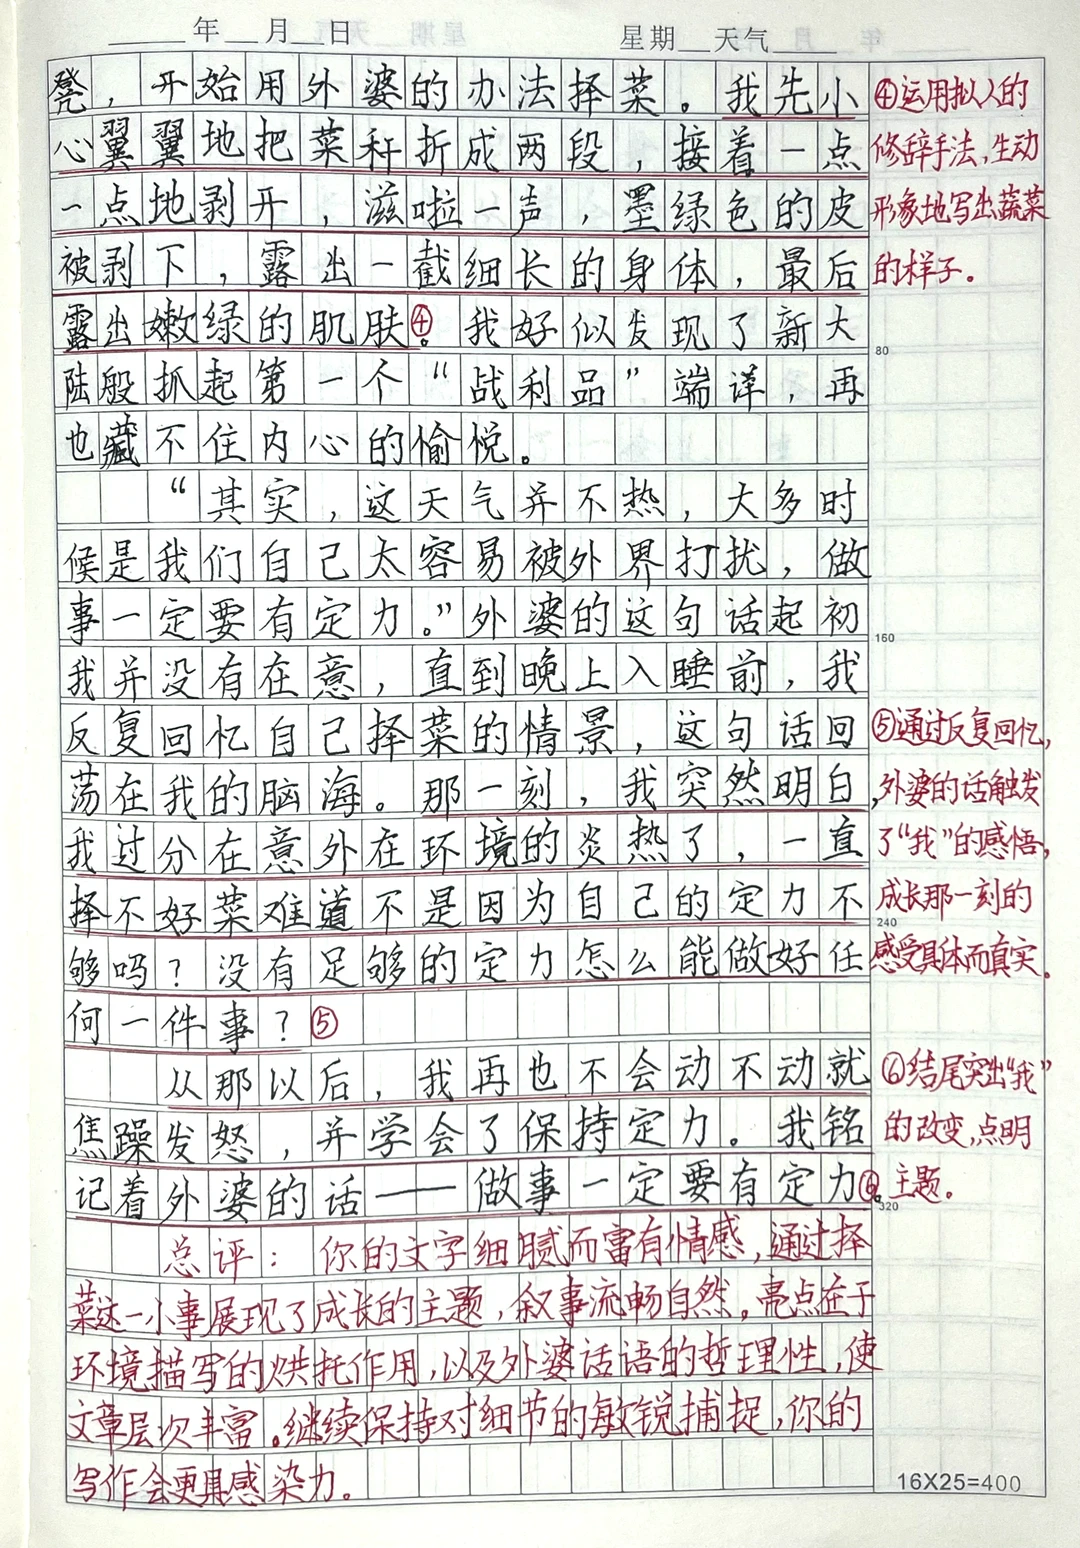 ____年__月__日 星期__天气____
凳，开始用外婆的办法择菜。我先小
心翼翼地把菜秆折成两段，接着一点
一点地剥开，滋啦一声，墨绿色的皮
被剥下，露出一截细长的身体，最后
露出嫩绿的肌肤④。我好似发现了新大
陆般抓起第一个“战利品”端详，再
也藏不住内心的愉悦。
“其实，这天气并不热，大多时
候是我们自己太容易被外界打扰，做
事一定要有定力。”外婆的这句话起初
我并没有在意，直到晚上入睡前，我
反复回忆自己择菜的情景，这句话回
荡在我的脑海。那一刻，我突然明白，
我过分在意外在环境的炎热了，一直
择不好菜难道不是因为自己的定力不
够吗？没有足够的定力怎么能做好任
何一件事？⑤
从那以后，我再也不会动不动就
焦躁发怒，并学会了保持定力。我铭
记着外婆的话——做事一定要有定力⑥。
总评：你的文字细腻而富有情感，通过择
菜这一小事展现了成长的主题，叙事流畅自然。亮点在于
环境描写的烘托作用，以及外婆话语的哲理性，使
文章层次丰富。继续保持对细节的敏锐捕捉，你的
写作会更具感染力。
④运用拟人的
修辞手法，生动
形象地写出蔬菜
的样子。
80
160
⑤通过反复回忆，
外婆的话触发
了“我”的感悟，
成长那一刻的
240
感受具体而真实。
⑥结尾突出“我”
的改变，点明
主题。
320
16X25=400